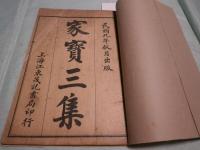 民國九年秋月出版
家寶三集
上海江東茂記書局印行